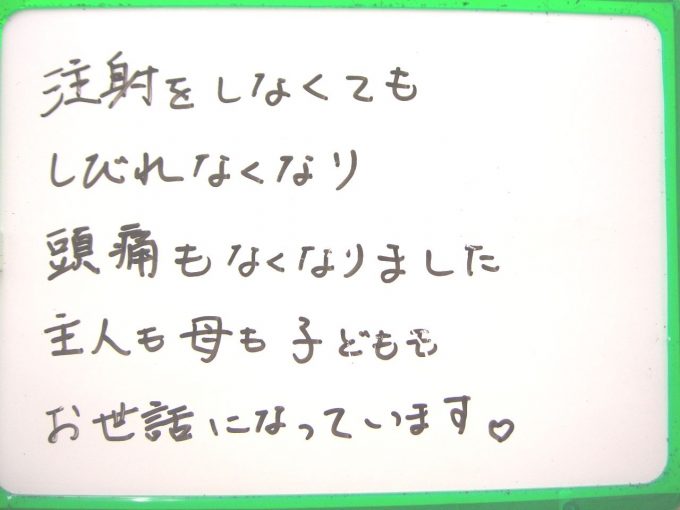 注射をしなくても
しびれなくなり
頭痛もなくなりました
主人も母も子どもも
お世話になっています♡